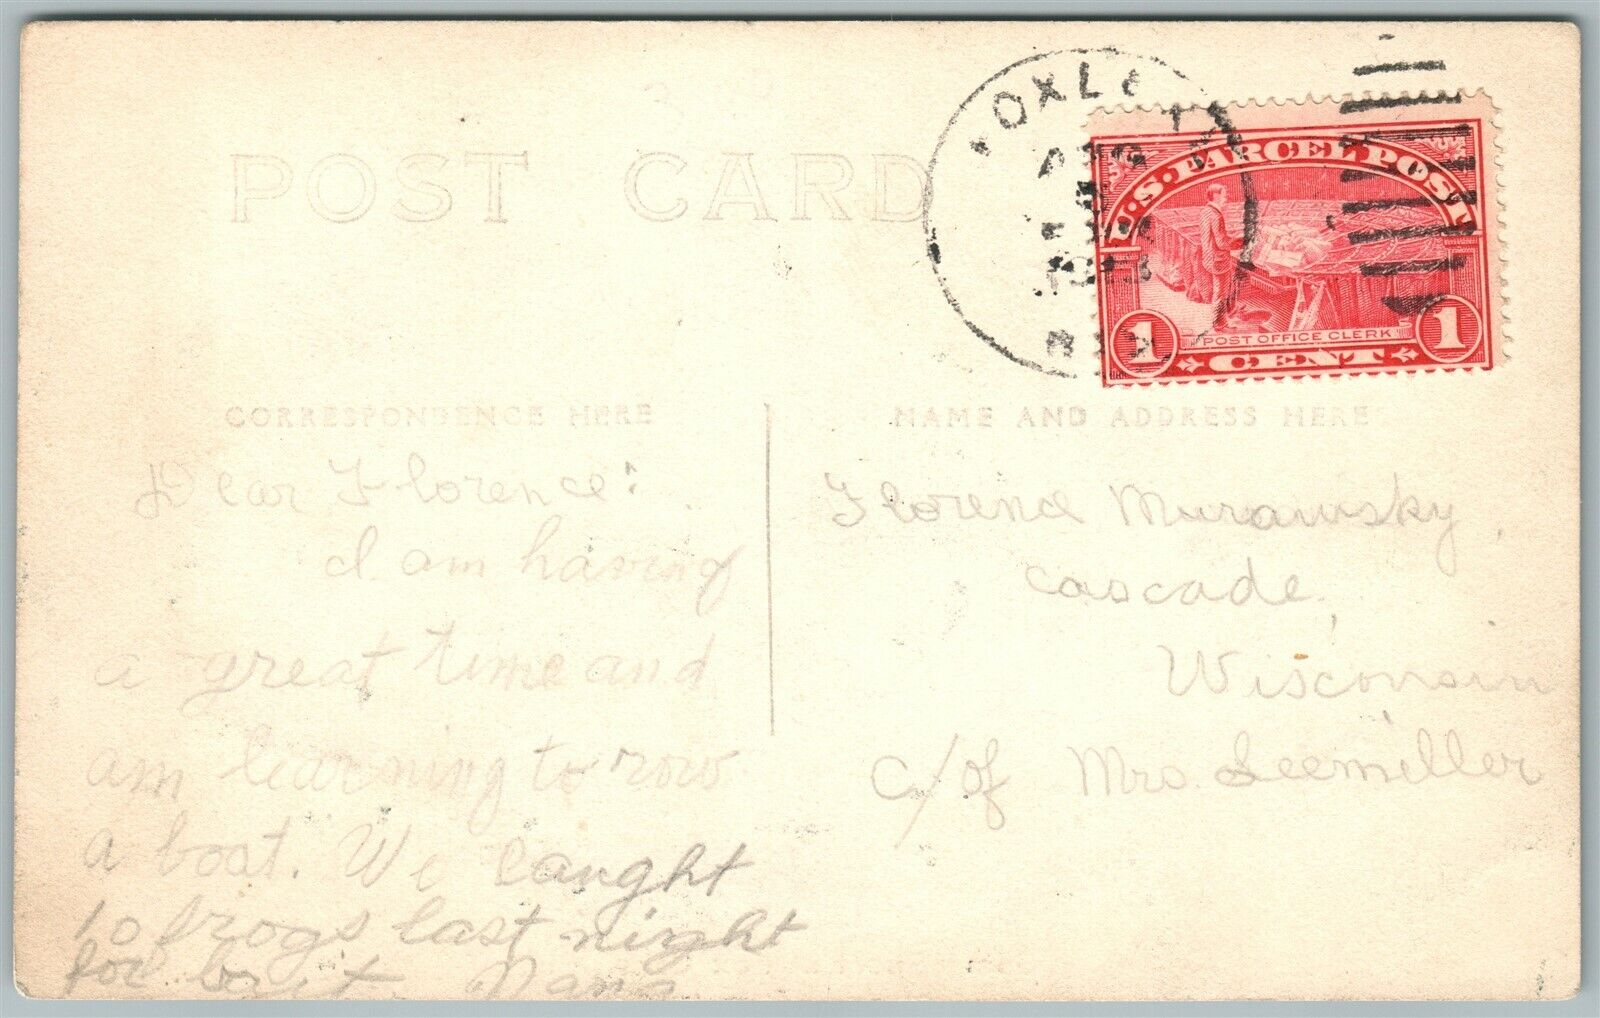 POST CARD
AUG
1913
WIS
U.S. PARCEL POST
POST OFFICE CLERK
1 CENT 1
CORRESPONDENCE HERE
NAME AND ADDRESS HERE
Dear Florence:
I am having
a great time and
am learning to row
a boat. We caught
10 frogs last night
for bait.
Florence Murawsky,
Cascade,
Wisconsin
c/of Mrs. Seemiller